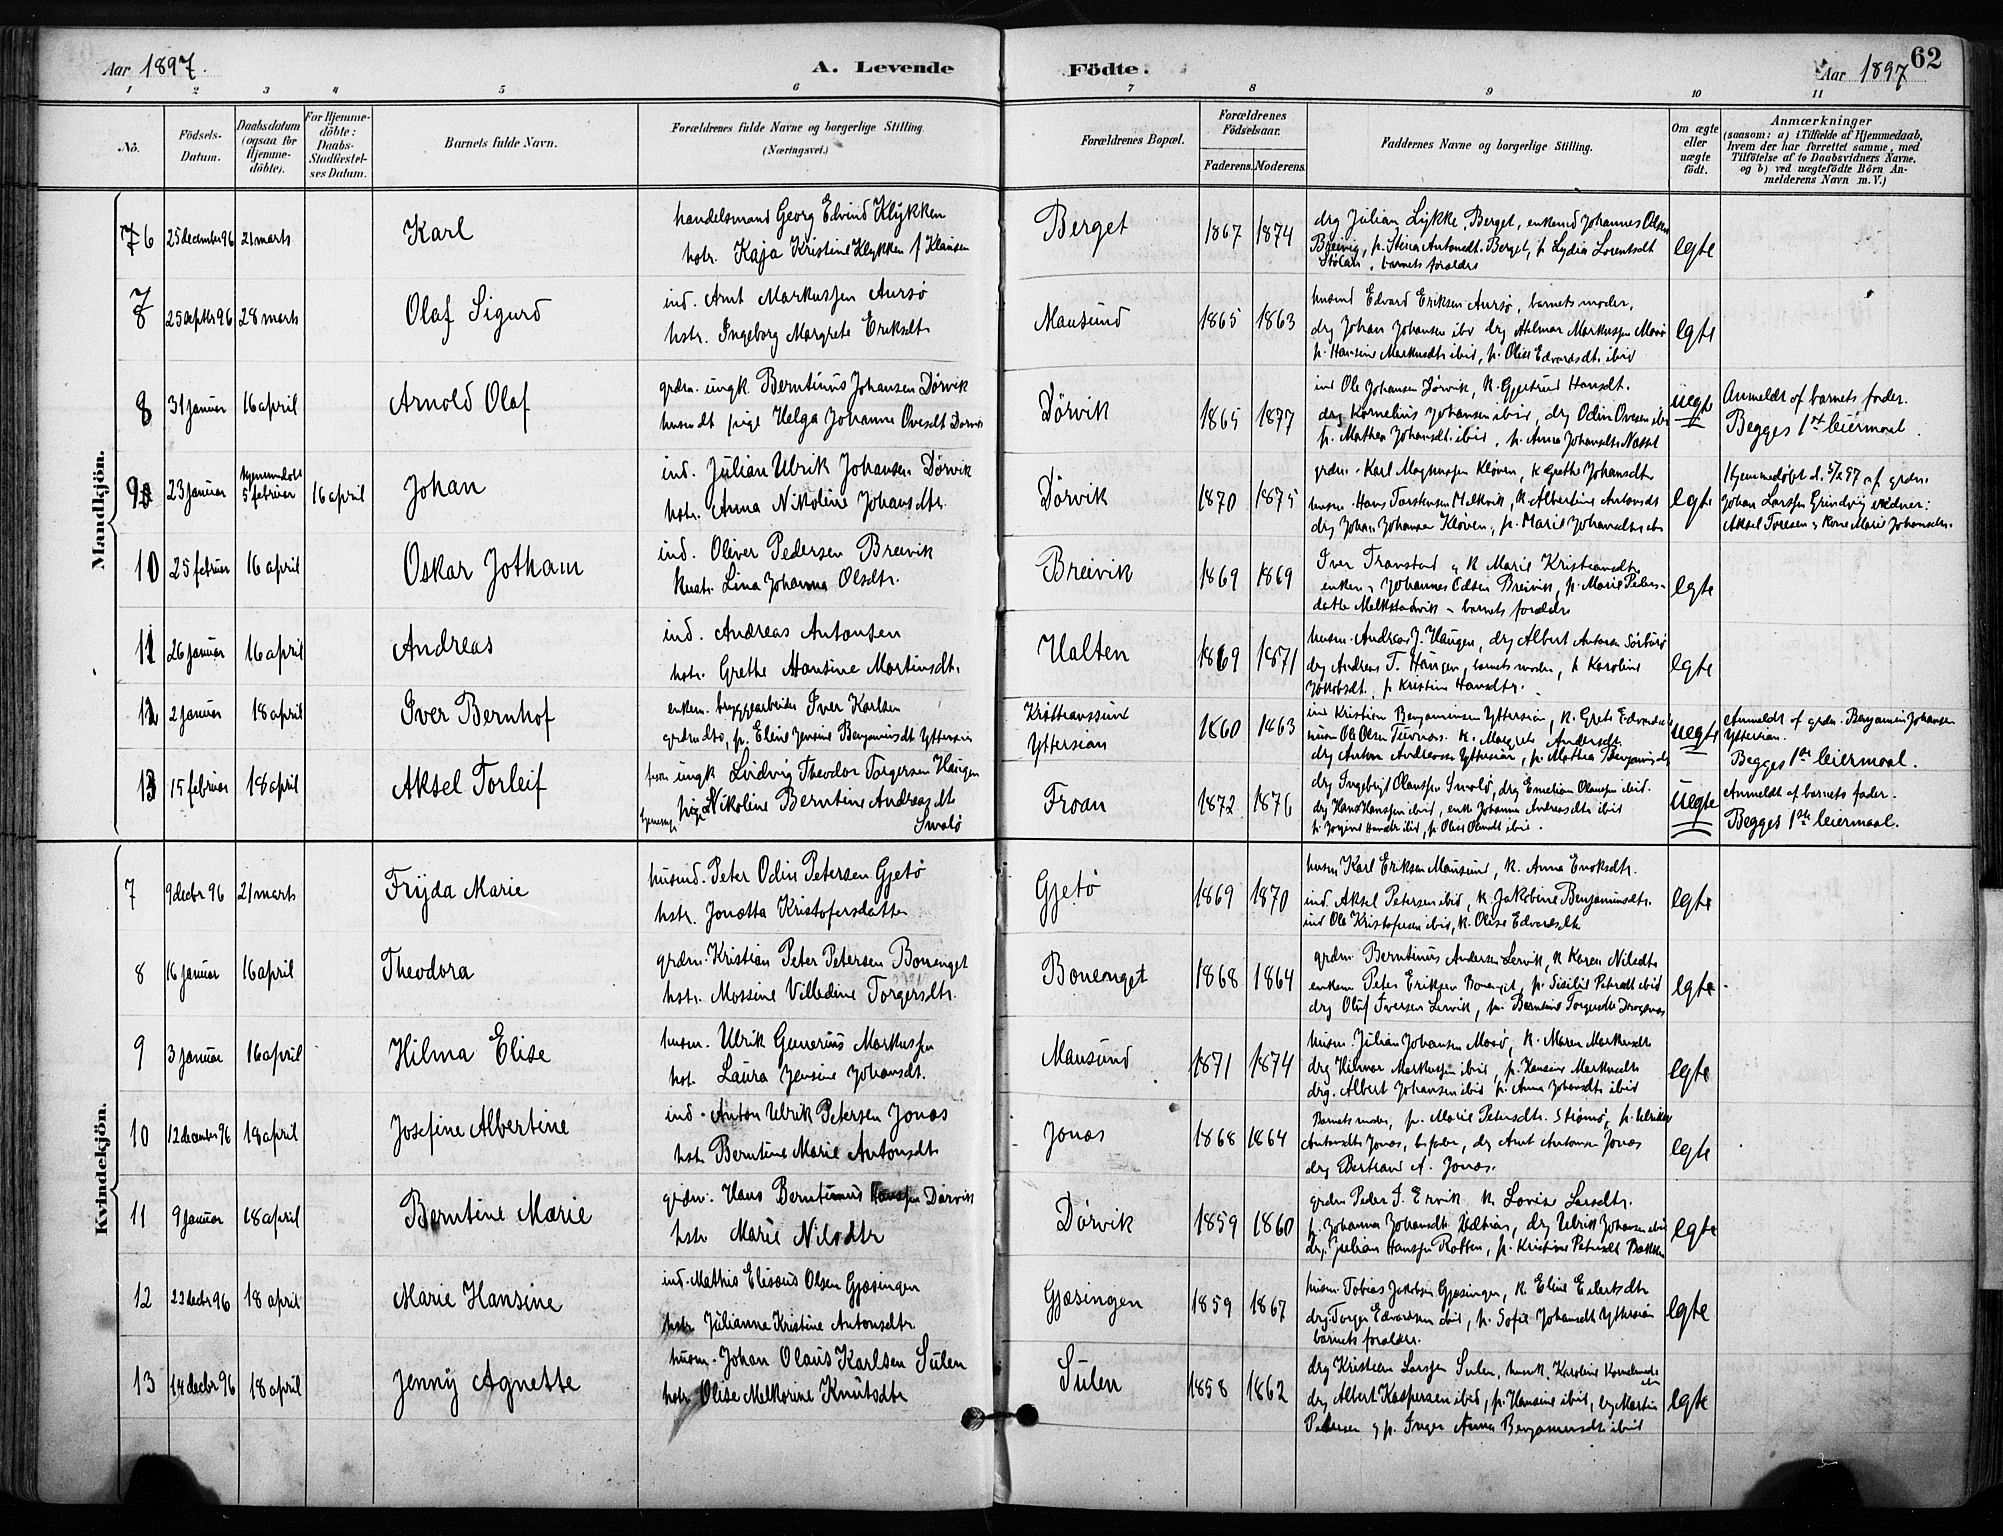 Aar 1897. A. Levende Födte. Aar 1897 62
1 2 3 4 5 6 7 8 9 10 11
No.
Födsels-Datum.
Daabsdatum (ogsaa for Hjemme-döbte).
For Hjemme-döbte: Daabs-Stadfæstel-ses Datum.
Barnets fulde Navn.
Forældrenes fulde Navne og borgerlige Stilling.
(Næringsvei.)
Forældrenes Bopæl.
Forældrenes Födselsaar.
Faderens. Moderens.
Faddernes Navne og borgerlige Stilling.
Om ægte eller uægte födt.
Anmærkninger
(saasom: a) i Tilfælde af Hjemmedaab,
hvem der har forrettet samme, med
Tilföielse af to Daabsvidners Navne.
og b) ved uægtefödte Börn An-
melderens Navn m. V.)
Mandkjön.
6 25 december 96 21 marts Karl
handelsmand Georg Edvind Klykken
hstr. Kaja Kristine Klykken f Klausen
Berget 1867 1874
drg Julian Lykke, Berget, enkemd Johannes Olsen
Breivig, p. Stina Antondt. Berget, p. Lydia Lorentsdt
barnets forældre
egte
7 25 28 marts Olaf Sigurd
ind. Arnt Markussen Aursø
hstr. Ingeborg Margrete Eriksdt
Mausund 1865 1863
husmd Edvard Eriksen Aursø, barnets moder,
drg Johan Johansen ibd drg Hilmar Markussen
p. Hansine Markusdtr ibid, p. Olise Edvardsdt. ibid
egte
8 31 januar 16 april Arnold Olaf
grdm. ungk Berntinus Johansen Dørvik
pige Helga Johanna Ovesdt Dørvik
Dørvik 1865 1877
ind Ole Johansen Dørvik, K. Gjertrud Hansdt.
drg Kornelius Johansen ibid, drg Odin Ovesen ibd
p. Mathea Johansdt. ibid, p. Anna Johansdt. Nesset
uegte
Anmeldt af barnets fader.
Begges 1ste leiermaal.
9 23 januar Hjemmedøbt 5 februar 16 april Johan
ind. Julian Ulrik Johansen Dørvik
hstr. Anna Nikoline Johansdtr.
Dørvik 1870 1875
grdm. Karl Magnussen Kløven, K Grethe Johansdtr
husm. Hans Torstensen Melkvik, K. Albertine Antonsdt
drg Johan Johansen Kløven, p. Marie Johansdtr. ibd
egte
Hjemmedøbt d. 5/2 97 af grdm.
Johan Larssen Grindvig vidner:
Aksel Toresen & Kone Marie Johansdtr.
10 25 februar 16 april Oskar Jotham
ind. Oliver Pedersen Breivik
Hustr. Lina Johanna Olsdtr.
Breivik 1869 1869
Iver Transtad & K Marie Kristiansdtr
enkem. Johannes Olsen Breivik, p. Marie Peders-
datter Melkstadvik barnets forældre
egte
11 26 januar 16 april Andreas
ind. Andreas Antonsen
hstr. Grethe Hansine Martinsdt.
Halten 1869 1871
husm. Andreas J. Haugen, drg Albert Antonsen Sørburø
drg Andreas T. Haugen, barnets moder, p Karoline
Jakobsdt. p Kristine Hansdtr.
egte
12 2 januar 18 april Iver Bernhof
enkem. bryggearbeider Iver Karlsen
grdmdtr, p. Eline Jensine Benjaminsdt Yttersian
Kristianssund
Yttersian 1860 1863
ind Kristian Benjaminsen Yttersian, K. Grete Edvardsdt
husm Ole Olsen K. Margrete Andersdt.
drg Anton Andreassen Yttersian, p. Mathea Benjaminsdt
uegte
Anmeldt af grdm. Benjamin Johansen
Yttersian.
Begges 1ste leiermaal.
13 15 februar 18 april Aksel Torleif
ungk Ludvig Theodor Torgersen Haugen
pige Nikoline Berntine Andreasdt
Sundø
Froan 1872 1876
drg Ingebrigt Olaussen drg Emelian Olaussen ibid.
drg Hans Hanssen ibid, enke Johanna Andreasdtr ibid
p. Jørgine Hansdtr ibid, p. Olise Olausdt ibid.
uegte
Anmeldt af barnets fader.
Begges 1ste leiermaal.
Kvindekjön.
7 9 decbr 96 21 marts Frijda Marie
husmd. Peter Odin Petersen Gjetø
hstr. Jonetta Kristofersdatter
Gjetø 1869 1870
husm Karl Eriksen Mausund, K. Anna Enoksdtr.
ind. Aksel Petersen ibid, K. Jakobine Benjaminsdtr.
ind Ole Kristofersen ibid, K. Olise Edvardsdt
egte
8 16 januar 16 april Theodora
grdm. Kristian Peter Petersen Bonenget
hstr. Mossine Villadine Torgersdtr.
Bonenget 1868 1864
grdm. Berntinus Andersen Lervik, K Karen Nilsdtr
enkem Peter Eriksen Bonenget, p. Sisilie Petersdt ibid
drg Oluf Iversen Lervik, p. Berntine Torgersdtr
egte
9 3 januar 16 april Hilma Elise
husm. Ulrik Gunerius Markussen
hst. Laura Jensine Johansdt.
Mausund 1871 1874
husm. Julian Johansen Maasø, K. Maren Markusdt
drg Hilmar Markussen ibid, p. Hansine Markusdt
drg. Albert Johansen ibid, p. Anna Johansdtr ibid
egte
10 12 december 96 18 april Josefine Albertine
ind. Anton Ulrik Petersen Jonas
hst. Berntine Marie Antonsdt
Jonas 1868 1864
Barnets moder, p. Marie Petersdtr. Strømø, p. Ulrikke
Antonsdtr Jonas, b. fader, drg Arnt Antonsen Jonas
drg Bertrand A. Jonas.
egte
11 9 januar 18 april Berntine Marie
grdm. Hans Berntinus Hanssen Dørvik
hstr Marie Nilsdtr
Dørvik 1859 1860
grdm Peder J. Ervik K. Lovise Larsdtr.
p. Johanna Johansdtr. drg Ulrik Johansen ibid
drg. Julian Hanssen Rotten, p. Kristine Petersdt Bakken
egte
12 22 decbr 96 18 april Marie Hansine
ind. Mathis Elisæus Olsen Gjæsingen
hstr. Julianna Kristine Antonsdtr.
Gjæsingen 1859 1867
husm Tobias Jakobsen Gjæsingen, K. Eline Eilertsdtr
drg. Torger Edvardsen ibid, p. Sofie Johansdt Yttersian
barnets forældre.
egte
13 14 decbr 96 18 april Jenny Agnette
husm. Johan Olaus Karlsen Sulen
hstr Olise Melkorine Knutsdtr
Sulen 1858 1862
drg Kristian Larssen Sulen, Karoline
drg Albert Kaspersen ibid, p. Hansine ibid, Martin
Pedersen & p. Inger Anna Benjaminsdtr ibid
egte